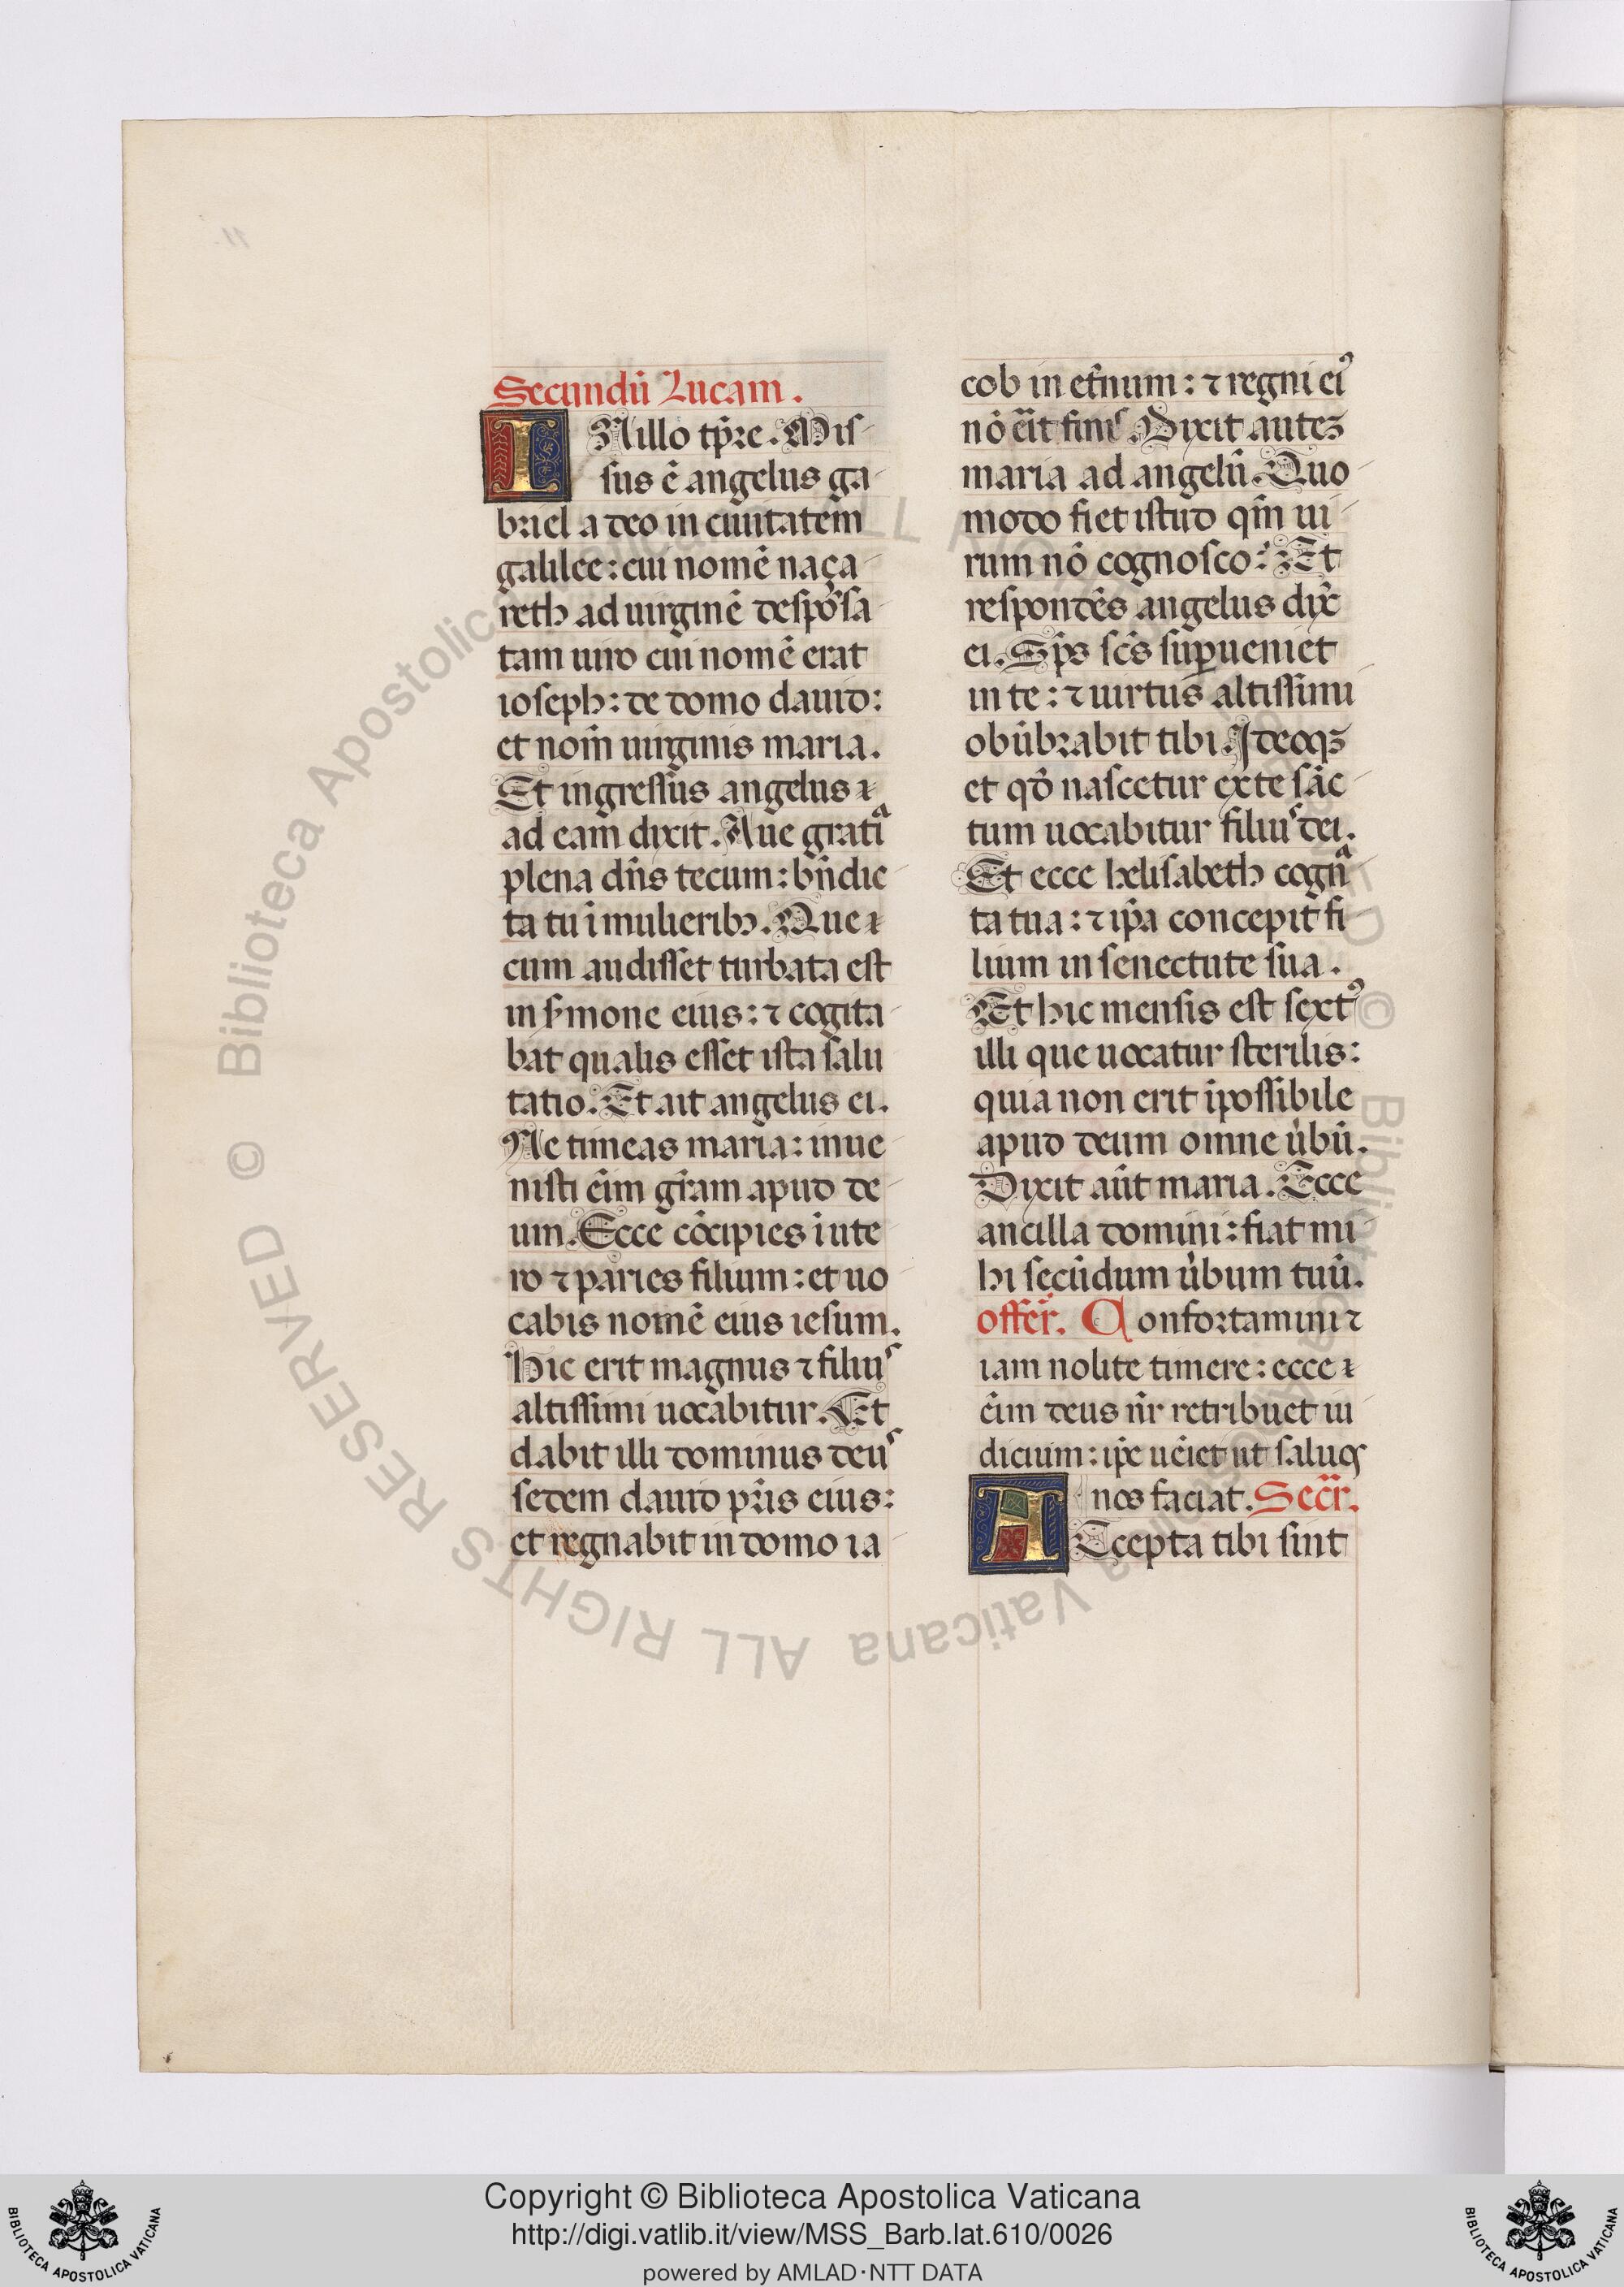 Secundũ Lucam.
IN illo tp̃re. Mis
sus ẽ angelus ga
briel a deo in ciuitatem
galilee: cui nomẽ naça
reth ad uirginẽ despõsa
tam uiro cui nomẽ erat
ioseph: de domo dauid:
et nom̃ uirginis maria.
Et ingressus angelus
ad eam dixit. Aue gratiᵃ
plena dñs tecum: bñdic
ta tu ĩ mulieribꝫ. Que
cum audisset turbata est
in ẜmone eius: ⁊ cogita
bat qualis esset ista salu
tatio. Et ait angelus ei.
Ne timeas maria: inue
nisti ẽim gr̃am apud de
um. Ecce cõcipies ĩ ute
ro ⁊ paries filium: et uo
cabis nomẽ eius iesum.
Hic erit magnus ⁊ filiuˢ
altissimi uocabitur. Et
dabit illi dominus deuˢ
sedem dauid pr̃is eius:
et regnabit in domo ia
cob in et̃num: ⁊ regni eiꝰ
nõ erit finiˢ. Dixit auteꝫ
maria ad angelũ. Quo
modo fiet istud qm̃ ui
rum nõ cognosco? Et
respondẽs angelus dix̃
ei. Sp̃s sc̃s suꝑueniet
in te: ⁊ uirtus altissimi
obũbrabit tibi. Ideoqꝫ
et qõ nascetur ex te sãc
tum uocabitur filiuˢ dei.
Et ecce helisabeth cognᵃ
ta tua: ⁊ ip̃a concepit fi
lium in senectute sua.
Et hic mensis est sextꝰ
illi que uocatur sterilis:
quia non erit ĩpossibile
apud deum omne ũbũ.
Dixit aũt maria. Ecce
ancilla domini: fiat mi
hi secũdum ũbum tuũ.
offer̃. Confortamini ⁊
iam nolite timere: ecce
ẽim deus nr̃ retribuet iu
dicium: ip̃e uẽiet ut saluos
nos faciat. Secr̃.
ACcepta tibi sint
Copyright © Biblioteca Apostolica Vaticana
http://digi.vatlib.it/view/MSS_Barb.lat.610/0026
powered by AMLAD·NTT DATA
BIBLIOTECA APOSTOLICA VATICANA
BIBLIOTECA APOSTOLICA VATICANA
© Biblioteca Apostolica Vaticana ALL RIGHTS RESERVED